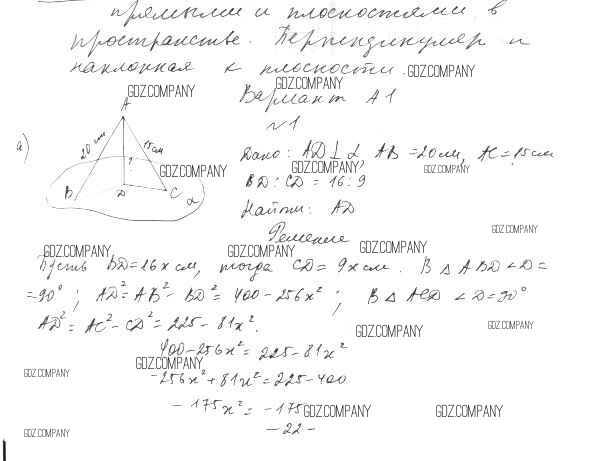 прямыми и плоскостями в
пространстве. Перпендикуляр и
наклонная к плоскости. GDZ.COMPANY
GDZ.COMPANY GDZ.COMPANY
Вариант А1
№1
а)
A
20 см
15 см
?
B
D
C
α
GDZ.COMPANY
Дано: AD ⊥ α, AB = 20 см, AC = 15 см
GDZ.COMPANY GDZ.COMPANY
BD : CD = 16 : 9
Найти: AD
GDZ.COMPANY
Решение
GDZ.COMPANY GDZ.COMPANY GDZ.COMPANY
Пусть BD = 16x см, тогда CD = 9x см. В △ ABD ∠D =
= 90°; AD² = AB² - BD² = 400 - 256x²; В △ ACD ∠D = 90°
AD² = AC² - CD² = 225 - 81x².
GDZ.COMPANY GDZ.COMPANY
400 - 256x² = 225 - 81x²
GDZ.COMPANY
-256x² + 81x² = 225 - 400
GDZ.COMPANY
-175x² = -175
GDZ.COMPANY GDZ.COMPANY
-22-
GDZ.COMPANY